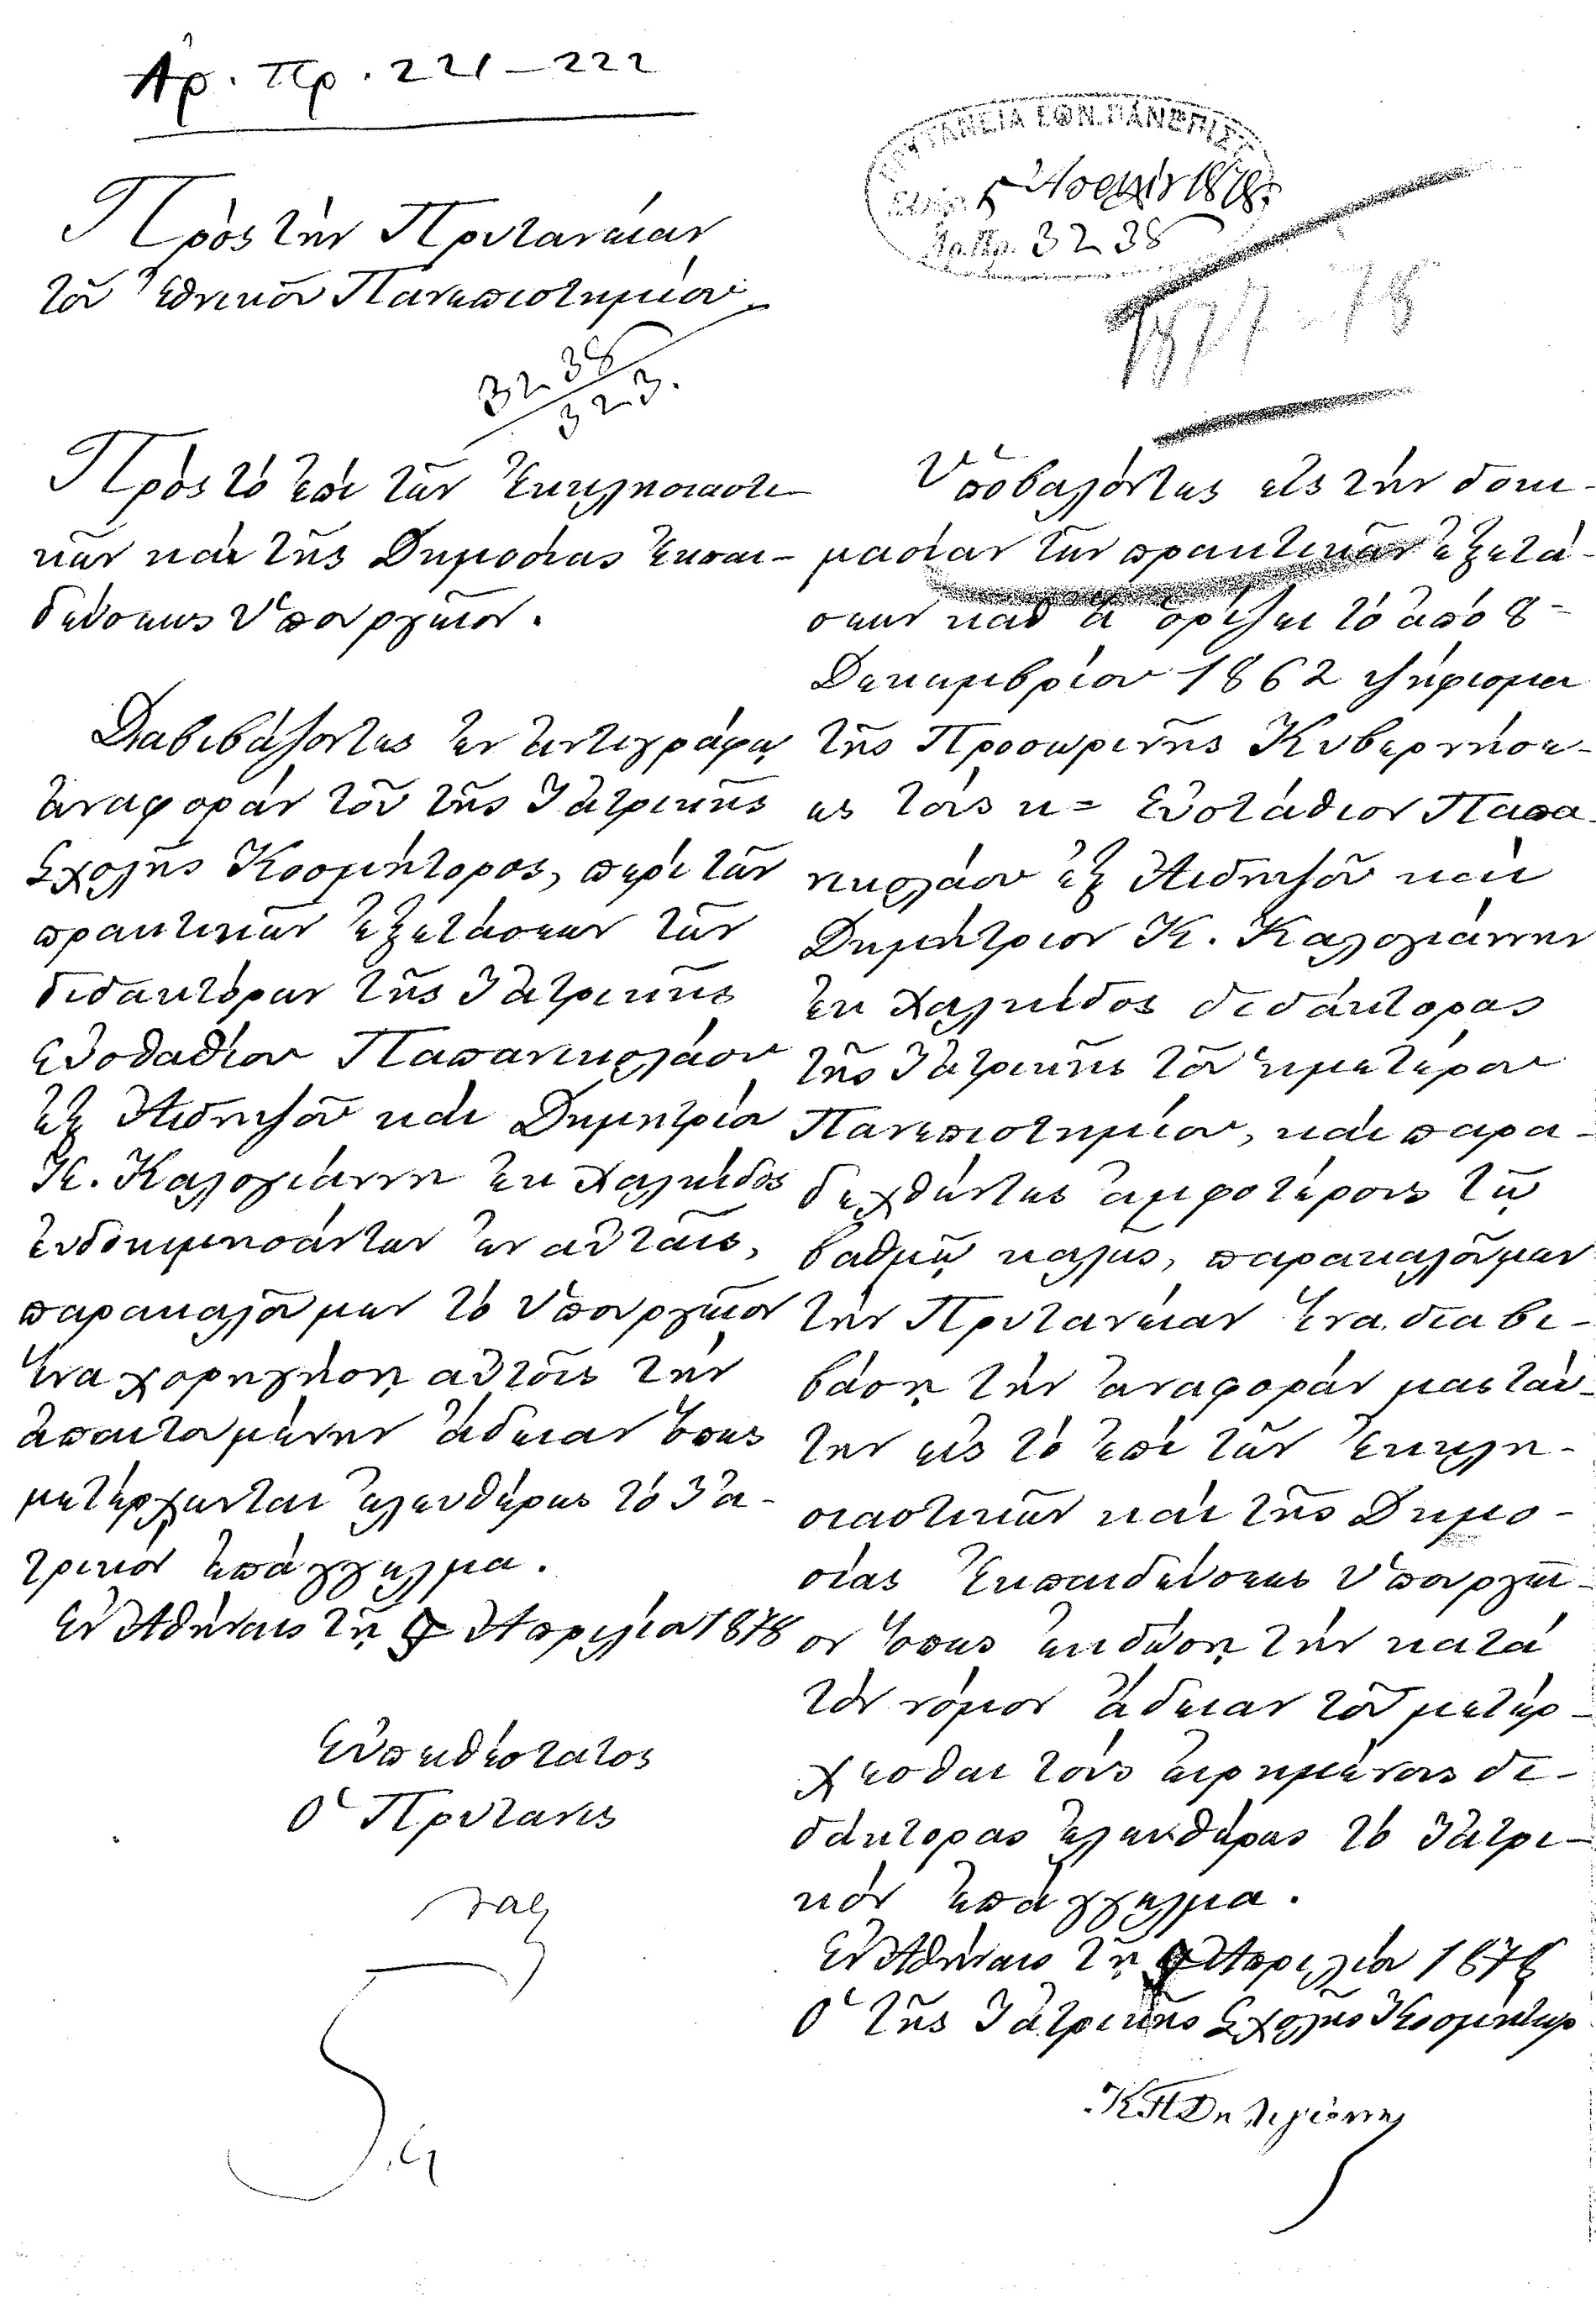 Ἀρ. πρ. 221-222
ΠΡΥΤΑΝΕΙΑ ΕΘΝ. ΠΑΝΕΠΙΣΤ
5
Ἀρ. Πρ. 3238
1877-78
Πρὸς τὴν Πρυτανείαν
τοῦ Ἐθνικοῦ Πανεπιστημίου
3238
323.
Πρὸς τὸ ἐπὶ τῶν Ἐκκλησιαστι-
κῶν καὶ τῆς Δημοσίας Ἐκπαι-
δεύσεως Ὑπουργεῖον.
Διαβιβάζοντες ἐν ἀντιγράφῳ
ἀναφορὰν τοῦ τῆς Ἰατρικῆς
Σχολῆς Κοσμήτορος, περὶ τῶν
πρακτικῶν ἐξετάσεων τῶν
διδακτόρων τῆς Ἰατρικῆς
Εὐσθαθίου Παπανικολάου
ἐξ Αἰδηψοῦ καὶ Δημητρίου
Κ. Καλογιάννη ἐκ Χαλκίδος
εὐδοκιμησάντων ἐν αὐταῖς,
παρακαλοῦμεν τὸ Ὑπουργεῖον
ἵνα χορηγήσῃ αὐτοῖς τὴν
ἀπαιτουμένην ἄδειαν ὅπως
μετέρχωνται ἐλευθέρως τὸ Ἰα-
τρικὸν ἐπάγγελμα.
Ἐν Ἀθήναις τῇ 9 Ἀπριλίου 1878
Εὐπειθέστατος
Ὁ Πρύτανις
Ὑποβαλόντες εἰς τὴν δοκι-
μασίαν τῶν πρακτικῶν ἐξετά-
σεων καθ' ἃ ὁρίζει τὸ ἀπὸ 8=
Δεκεμβρίου 1862 ψήφισμα
τῆς Προσωρινῆς Κυβερνήσε-
ως τοὺς κ= Εὐστάθιον Παπα-
νικολάου ἐξ Αἰδηψοῦ καὶ
Δημήτριον Κ. Καλογιάννην
ἐκ Χαλκίδος διδάκτορας
τῆς Ἰατρικῆς τοῦ ἡμετέρου
Πανεπιστημίου, καὶ παρα-
δεχθέντες ἀμφοτέρους τῷ
βαθμῷ καλῶς, παρακαλοῦμεν
τὴν Πρυτανείαν ἵνα διαβι-
βάσῃ τὴν ἀναφοράν μας ταύ-
την εἰς τὸ ἐπὶ τῶν Ἐκκλη-
σιαστικῶν καὶ τῆς Δημο-
σίας Ἐκπαιδεύσεως Ὑπουργεῖ-
ον ὅπως ἐκδώσῃ τὴν κατὰ
τὸν νόμον ἄδειαν τοῦ μετέρ-
χεσθαι τοὺς εἰρημένους δι-
δάκτορας ἐλευθέρως τὸ Ἰατρι-
κὸν ἐπάγγελμα.
Ἐν Ἀθήναις τῇ 9 Ἀπριλίου 1878
Ὁ τῆς Ἰατρικῆς Σχολῆς Κοσμήτωρ
Κ Π Δηλιγιάννης